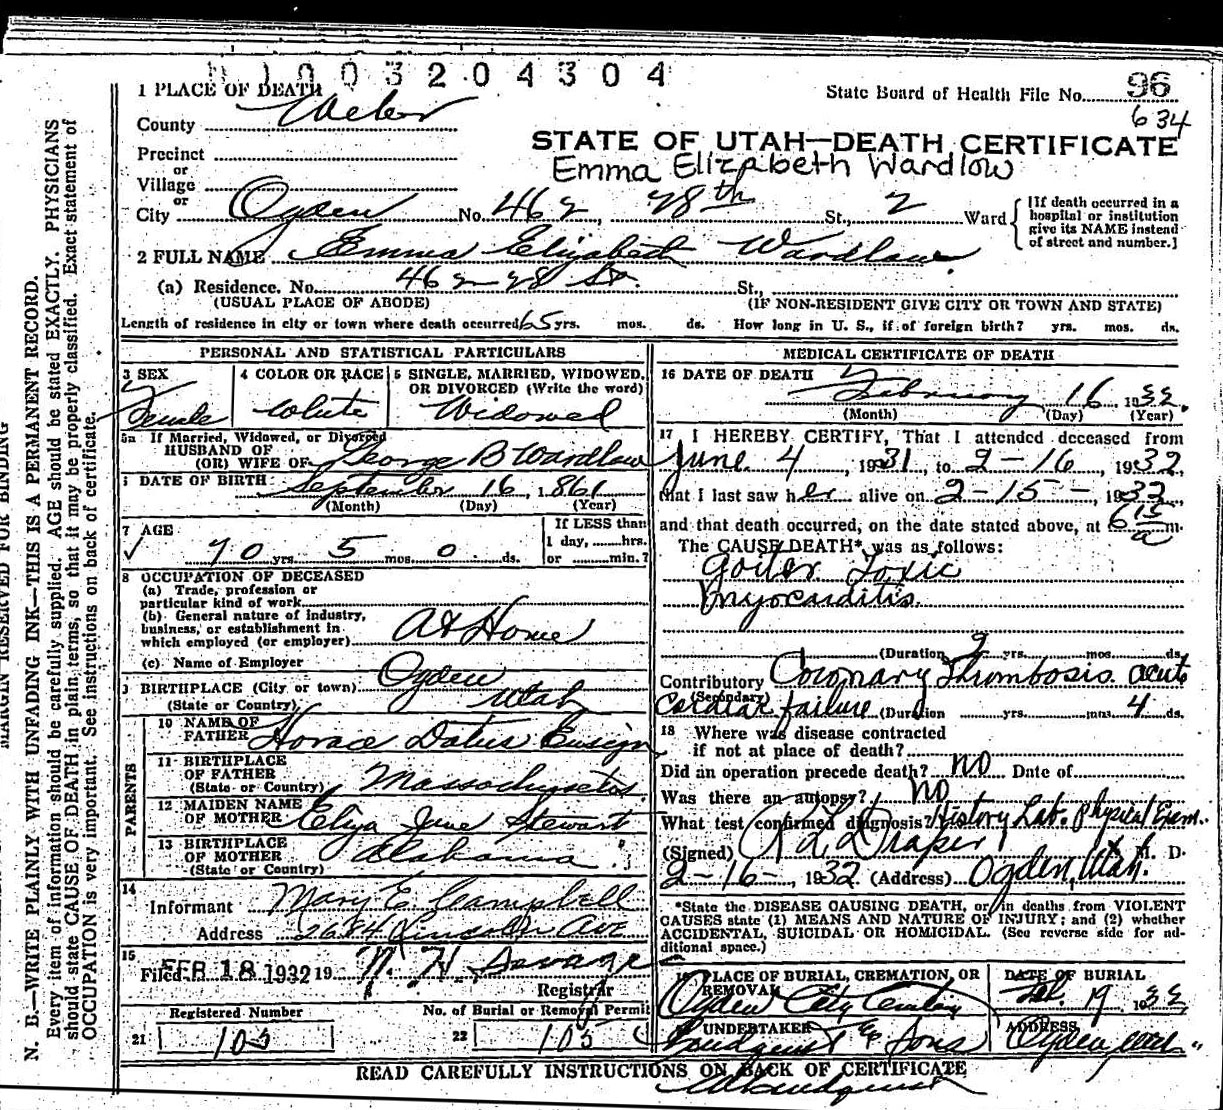 N 1 0 0 3 2 0 4 3 0 4
1 PLACE OF DEATH
State Board of Health File No. 96
634
County Weber
STATE OF UTAH—DEATH CERTIFICATE
Precinct
or
Village
Emma Elizabeth Wardlow
or
City Ogden No. 462, 28th St., 2 Ward
[If death occurred in a
hospital or institution
give its NAME instead
of street and number.]
2 FULL NAME Emma Elizabeth Wardlaw.
(a) Residence. No. 462-28 St. St.,
(USUAL PLACE OF ABODE) (IF NON-RESIDENT GIVE CITY OR TOWN AND STATE)
Length of residence in city or town where death occurred 65 yrs. mos. ds. How long in U. S., if of foreign birth? yrs. mos. ds.
PERSONAL AND STATISTICAL PARTICULARS
3 SEX
Female
4 COLOR OR RACE
White
5 SINGLE, MARRIED, WIDOWED,
OR DIVORCED (Write the word)
Widowed
5a If Married, Widowed, or Divorced
HUSBAND OF
(OR) WIFE OF George B Wardlaw
DATE OF BIRTH September 16, 1861
(Month) (Day) (Year)
7 AGE
70 yrs. 5 mos. 0 ds.
If LESS than
1 day, hrs.
or min.?
8 OCCUPATION OF DECEASED
(a) Trade, profession or
particular kind of work
(b) General nature of industry,
business, or establishment in
which employed (or employer) At Home
(c) Name of Employer
BIRTHPLACE (City or town) Ogden
(State or Country) Utah
PARENTS
10 NAME OF
FATHER Horace Datus Ensign
11 BIRTHPLACE
OF FATHER
(State or Country) Massachusetts
12 MAIDEN NAME
OF MOTHER Eliza Jane Stewart
13 BIRTHPLACE
OF MOTHER
(State or Country) Alabama
14
Informant Mary E. Campbell
Address 2684 Lincoln Ave
15
Filed FEB 18 1932 19 W. H. Savage
Registrar
Registered Number
21 105
No. of Burial or Removal Permit
22 105
MEDICAL CERTIFICATE OF DEATH
16 DATE OF DEATH
February 16 1932.
(Month) (Day) (Year)
17 I HEREBY CERTIFY, That I attended deceased from
June 4, 1931, to 2-16, 1932,
that I last saw her alive on 2-15-, 1932,
and that death occurred, on the date stated above, at 6 15 a m.
The CAUSE DEATH*, was as follows:
Goiter Toxic
Myocarditis.
(Duration 9 yrs. mos. ds.
Contributory Coronary Thrombosis. acute
(Secondary)
Cardiac failure (Duration yrs. mos. 4 ds.
18 Where was disease contracted
if not at place of death?
Did an operation precede death? no Date of
Was there an autopsy? no
What test confirmed diagnosis? History Lab. Physical Exam.
(Signed) Draper M. D.
2-16-, 1932 (Address) Ogden, Utah.
*State the DISEASE CAUSING DEATH, or in deaths from VIOLENT
CAUSES state (1) MEANS AND NATURE OF INJURY; and (2) whether
ACCIDENTAL, SUICIDAL OR HOMICIDAL. (See reverse side for ad-
ditional space.)
PLACE OF BURIAL, CREMATION, OR
REMOVAL
Ogden City Cemetery
DATE OF BURIAL
Feb. 19 1932
UNDERTAKER
Lindquist & Sons
ADDRESS
Ogden, Utah
READ CAREFULLY INSTRUCTIONS ON BACK OF CERTIFICATE
MARGIN RESERVED FOR BINDING
N. B.—WRITE PLAINLY WITH UNFADING INK—THIS IS A PERMANENT RECORD.
Every item of information should be carefully supplied. AGE should be stated EXACTLY. PHYSICIANS
should state CAUSE OF DEATH in plain terms, so that it may be properly classified. Exact statement of
OCCUPATION is very important. See instructions on back of certificate.